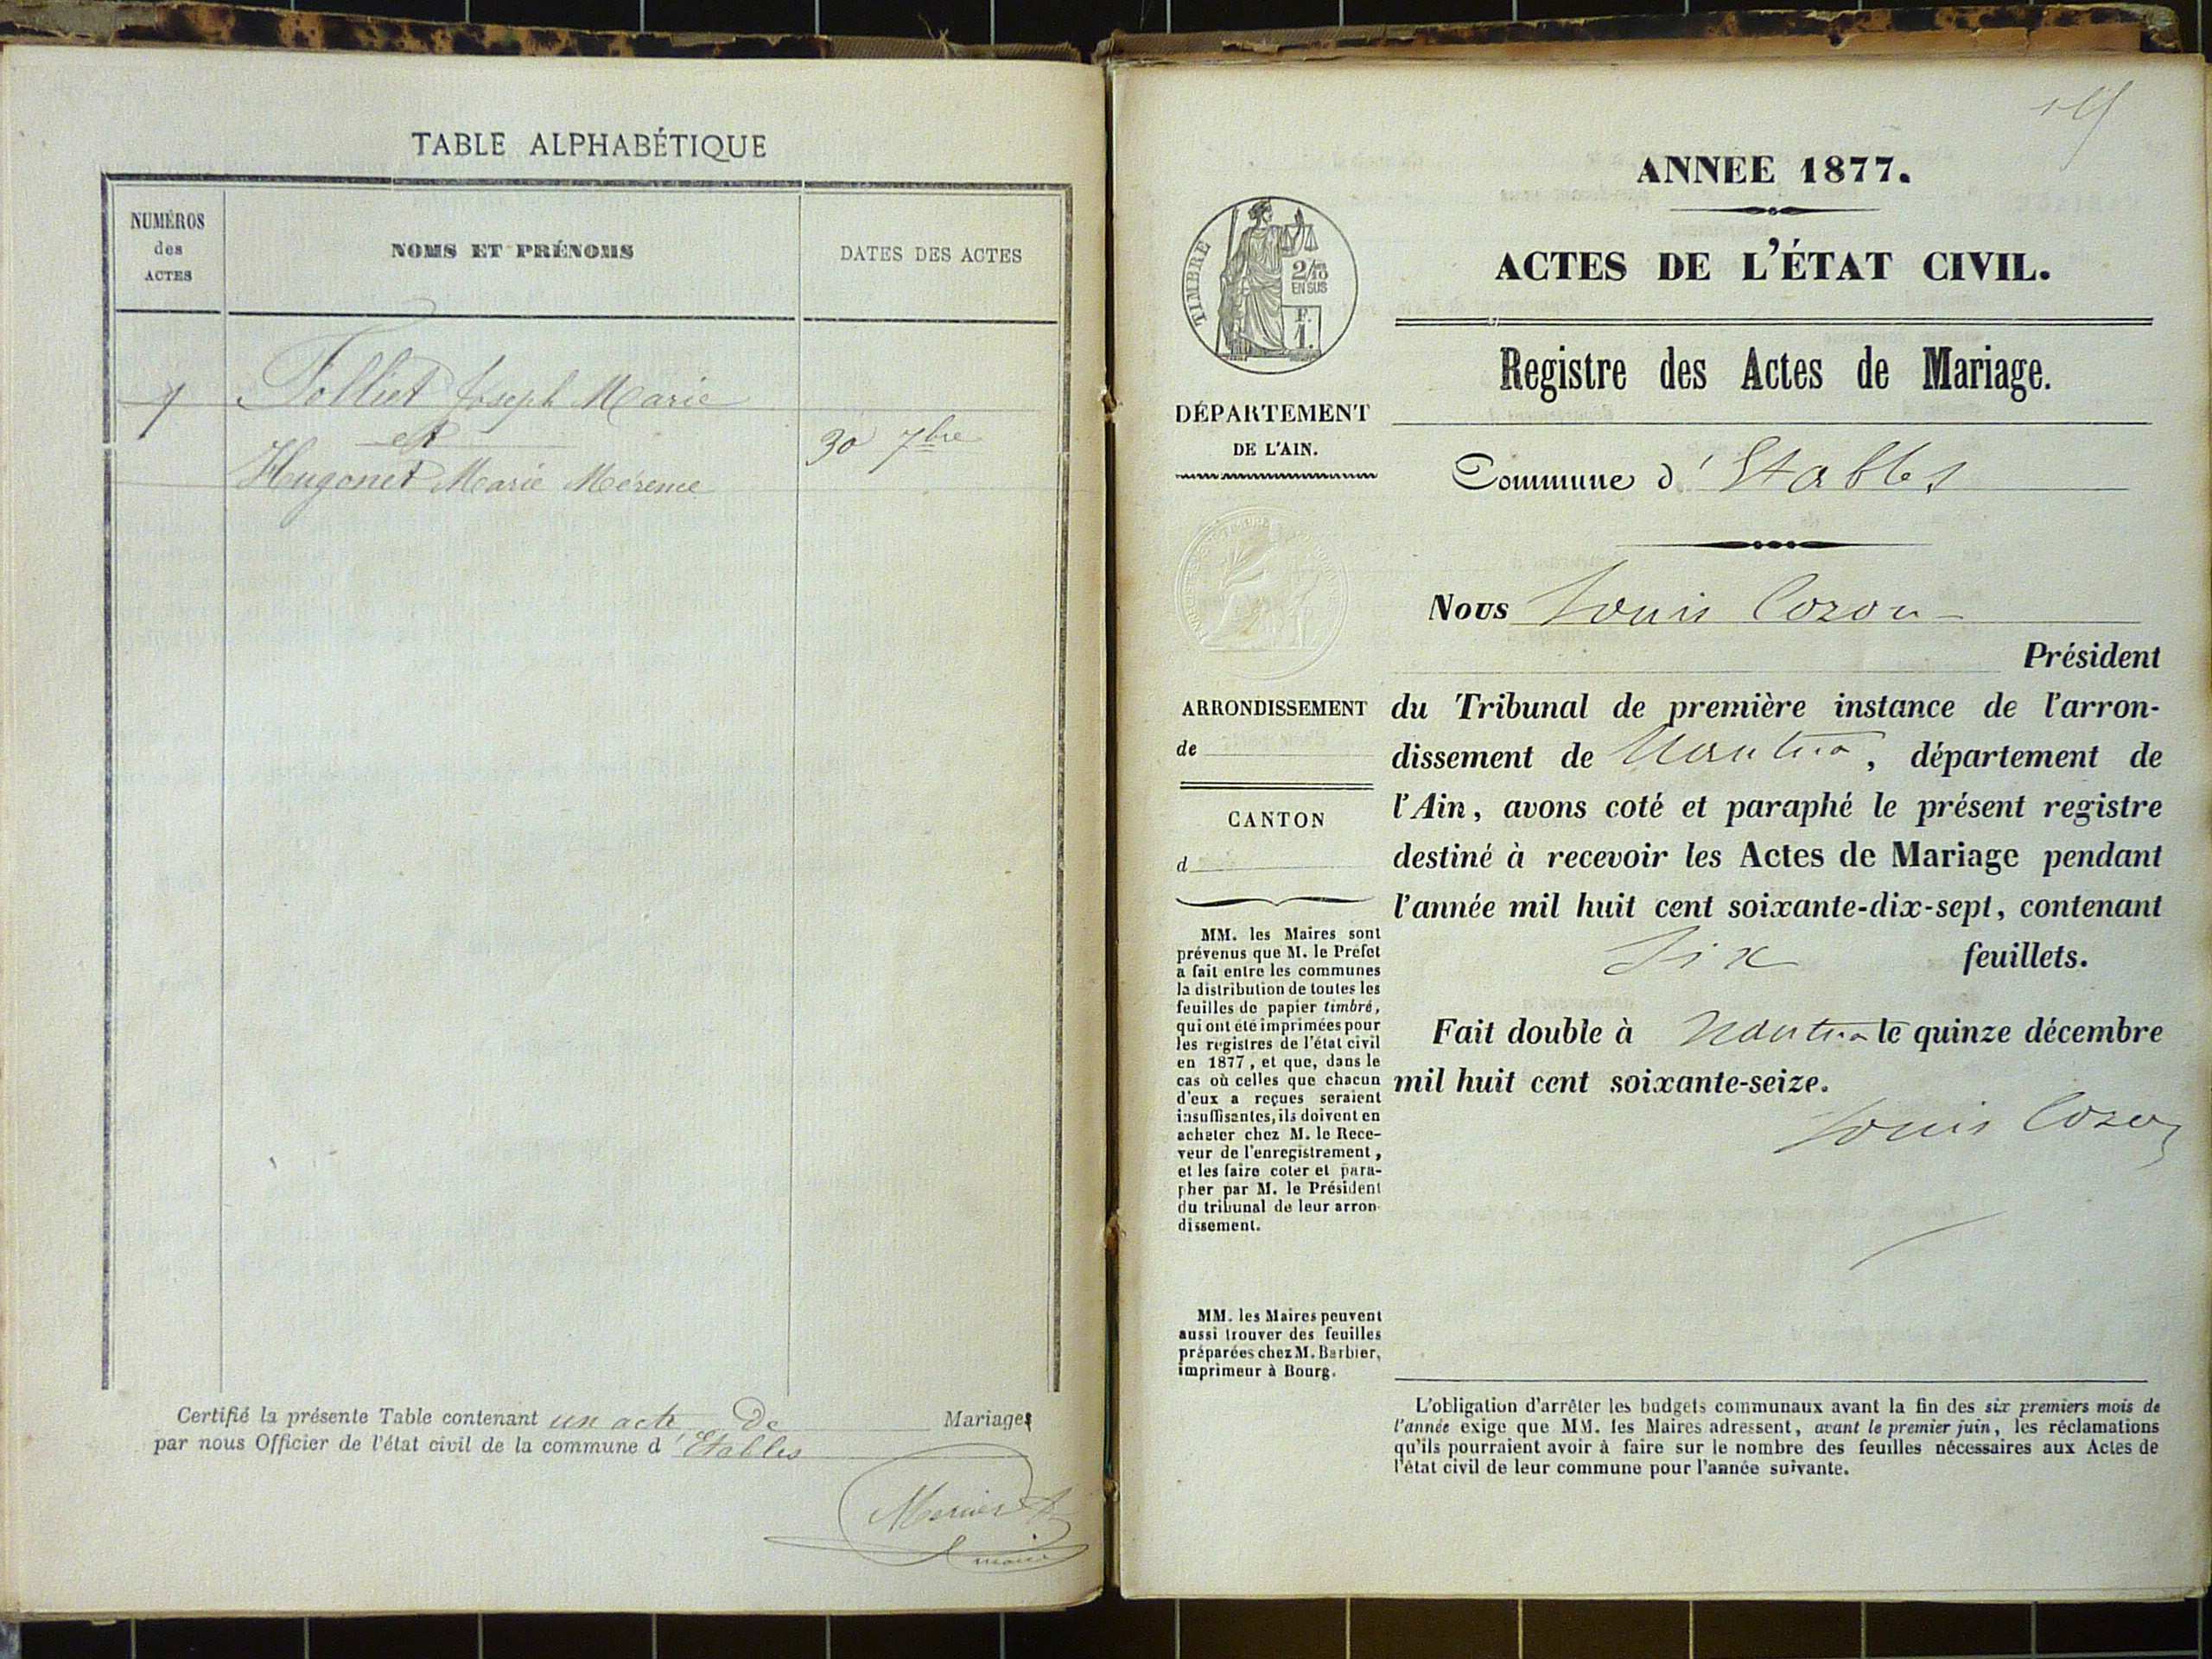 TABLE ALPHABÉTIQUE
NUMÉROS
des
ACTES
NOMS ET PRÉNOMS
DATES DES ACTES
1
Folliet Joseph Marie
et
Hugonet Marie
30 7bre
Certifié la présente Table contenant un acte de Mariages
par nous Officier de l'état civil de la commune d'Etables
maire
ANNÉE 1877.
ACTES DE L'ÉTAT CIVIL.
Registre des Actes de Mariage.
TIMBRE
2/10
EN SUS
F.
1.
DÉPARTEMENT
DE L'AIN.
Commune d'Etables
Nous Louis Cozon
Président
du Tribunal de première instance de l'arron-
dissement de Nantua, département de
l'Ain, avons coté et paraphé le présent registre
destiné à recevoir les Actes de Mariage pendant
l'année mil huit cent soixante-dix-sept, contenant
six feuillets.
Fait double à Nantua le quinze décembre
mil huit cent soixante-seize.
Louis Cozon
ARRONDISSEMENT
de
CANTON
d
MM. les Maires sont
prévenus que M. le Préfet
a fait entre les communes
la distribution de toutes les
feuilles de papier timbré,
qui ont été imprimées pour
les registres de l'état civil
en 1877, et que, dans le
cas où celles que chacun
d'eux a reçues seraient
insuffisantes, ils doivent en
acheter chez M. le Rece-
veur de l'enregistrement,
et les faire coter et para-
pher par M. le Président
du tribunal de leur arron-
dissement.
MM. les Maires peuvent
aussi trouver des feuilles
préparées chez M. Barbier,
imprimeur à Bourg.
L'obligation d'arrêter les budgets communaux avant la fin des six premiers mois de
l'année exige que MM. les Maires adressent, avant le premier juin, les réclamations
qu'ils pourraient avoir à faire sur le nombre des feuilles nécessaires aux Actes de
l'état civil de leur commune pour l'année suivante.